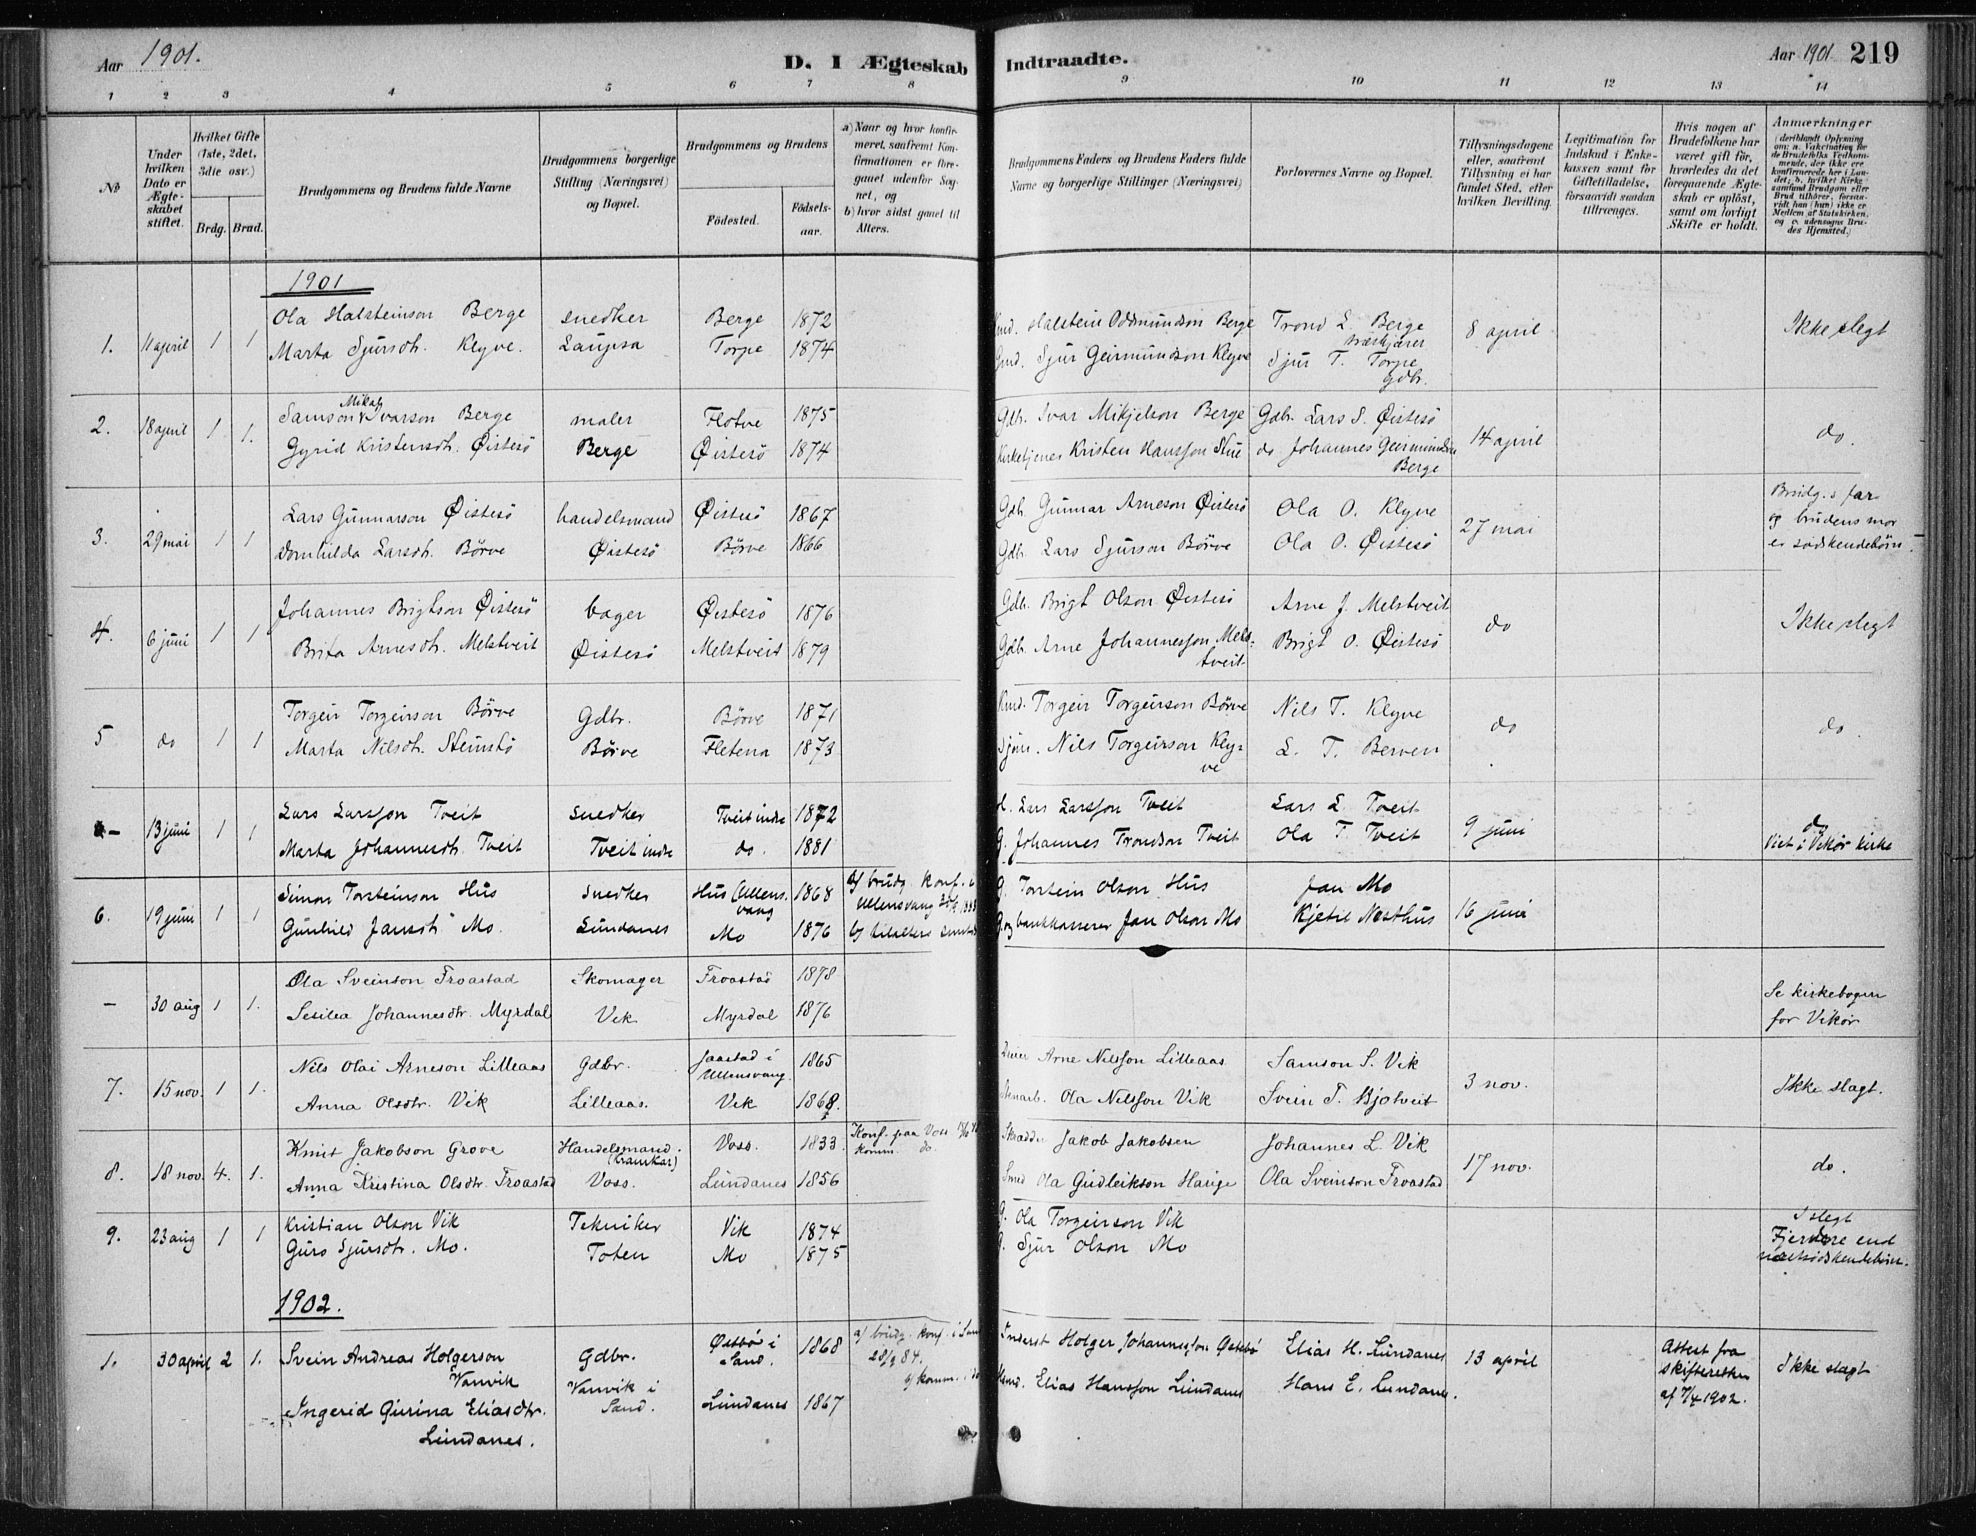 Aar 1901.
D. I Ægteskab Indtraadte.
Aar 1901 219
1 2 3 4 5 6 7 8 9 10 11 12 13 14
No
Under hvilken Dato er Ægteskabet stiftet.
Hvilket Gifte (1ste, 2det, 3die osv.)
Brdg. Brud.
Brudgommens og Brudens fulde Navne
Brudgommens borgerlige Stilling (Næringsvei) og Bopæl.
Brudgommens og Brudens
Fødested. Fødselsaar.
a) Naar og hvor konfirmeret, saafremt Konfirmationen er foregaaet udenfor Sognet, og
b) hvor sidst gaaet til Alters.
Brudgommens Faders og Brudens Faders fulde Navne og borgerlige Stillinger (Næringsvei)
Forlovernes Navne og Bopæl.
Tillysningsdagene eller, saafremt Tillysning ei har fundet Sted, efter hvilken Bevilling.
Legitimation for Indskud i Enkekassen samt for Giftetilladelse, forsaavidt saadan tiltrænges.
Hvis nogen af Brudefolkene har været gift før, hvorledes da det foregaaende Ægteskab er opløst, samt om lovligt Skifte er holdt.
Anmærkninger (deriblandt Oplysning om: a. Vakcination for de Brudefolks Vedkommende, der ikke ere konfirmerede her i Landet; b. hvilket Kirkesamfund Brudgom eller Brud tilhører, forsaavidt han (hun) ikke er Medlem af Statskirken, og c. udensogns Brudes Hjemsted.)
1901
Ola Halsteinson Berge snedker Berge 1872 Halstein Oddmundson Berge Trond L. Berge
1. 11 april 1 1 8 april Ikke slegt
Marta Sjursdh. Klyve. Laupsa Torpe 1874 Gmd. Sjur Geirmundson Klyve Sjur T. Torpe
Gdbr.
Mikal
Samson Ivarson Berge maler Flotve 1875 Gdb. Ivar Mikjelson Berge Gdb. Lars S. Øistesö
2. 18 april 1 1. 14 april do.
Gyrid Kristensdh. Øistesö Berge Øistesö 1874 Kirketjener Kristen Hansson Stue do Johannes Geirmundson
Berge
Lars Gunnarson Øistesö handelsmand Øistesö 1867 Gdb. Gunnar Arneson Øistesö Ola O. Klyve Brudg.s far
3. 29 mai 1 1 27 mai og brudens mor
Domhilda Larsdh. Börve Øistesö Börve 1866 Gdb. Lars Sjurson Börve Ola O. Øistesö er södskendebörn.
Johannes Brigtson Øistesö bager Øistesö 1876 Gdb. Brigt Olson Øistesö Arne J. Melstveit
4. 6 juni 1 1 do Ikke slegt
Brita Arnesdh. Melstveit Øistesö Melstveit 1879 Gdb. Arne Johannesson Mels-
tveit Brigt O. Øistesö
Torgeir Torgeirson Börve Gdbr. Börve 1871 Torgeir Torgeirson Börve Nils T. Klyve
5 do 1 1 do do.
Marta Nilsdh. Steinstö Börve Fletena 1873 Nils Torgeirson Kly-
ve L. T. Berven
Lars Larsson Tveit snedker Tveit indre 1872 Lars Larsson Tveit Lars L. Tveit
– 13 juni 1 1 9 juni do
Marta Johannesdh. Tveit Tveit indre do. 1881 G. Johannes Trondson Tveit Ola T. Tveit Viet i Vikör kirke
Simon Torsteinson Hus snedker Hus Ullens-
vang 1868 a/ brudg. konf. i Ullensvang G. Torstein Olson Hus Jan Mo
6. 19 juni 1 1 16 juni
Gunhild Jansdh Mo. Lundanes Mo 1876 G. og bankkasserer Jan Olson Mo Kjetil Nesthus
Ola Sveinson Troastad Skomager Troastad 1878
– 30 aug 1 1. Se kirkebogen
Sesilia Johannesdtr. Myrdal Vik Myrdal 1876 for Vikör
Nils Olai Arneson Lilleaas Gdbr. Jaastad i Ullensvang. 1865 Arne Nilsson Lilleaas Samson S. Vik
7. 15 nov. 1 1. 3 nov. Ikke slagt.
Anna Olsdtr. Vik Lilleaas. Vik 1868. Ola Nilsson Vik Svein T. Bjotveit
Knut Jakobson Grove Handelsmand.
(Kramkar) Voss. 1833. Konf. paa Voss
komm. do. Jakob Jakobsen Johannes L. Vik
8. 18 nov. 4. 1. 17 nov. do.
Anna Kristina Olsdtr. Troastad Voss. Lundanes 1856 Smed Ola Gudleikson Hauge Ola Sveinson Troastad
Kristian Olson Vik Tekniker Vik 1874 G. Ola Torgeirson Vik I slegt
9. 23 aug 1 1 Fjernere end
Guro Sjursdtr. Mo. Toten Mo 1875 G. Sjur Olson Mo næstsödskendebörn.
1902.
1. 30 april 2 1. Svein Andreas Holgerson
Vanvik Gdbr. Østbö i
Sand. 1868 a/ brudg. konf. i Sand
28/9 84.
b/ komm. i do Inderst Holger Johannesson Østebö Elias H. Lundanes 13 april Attest fra
skifteretten
af 7/4 1902. Ikke slagt
Ingerid Gurina Eliasdtr.
Lundanes. Vanvik i
Sand. Lundanes 1867 Elias Hansson Lundanes Hans E. Lundanes.